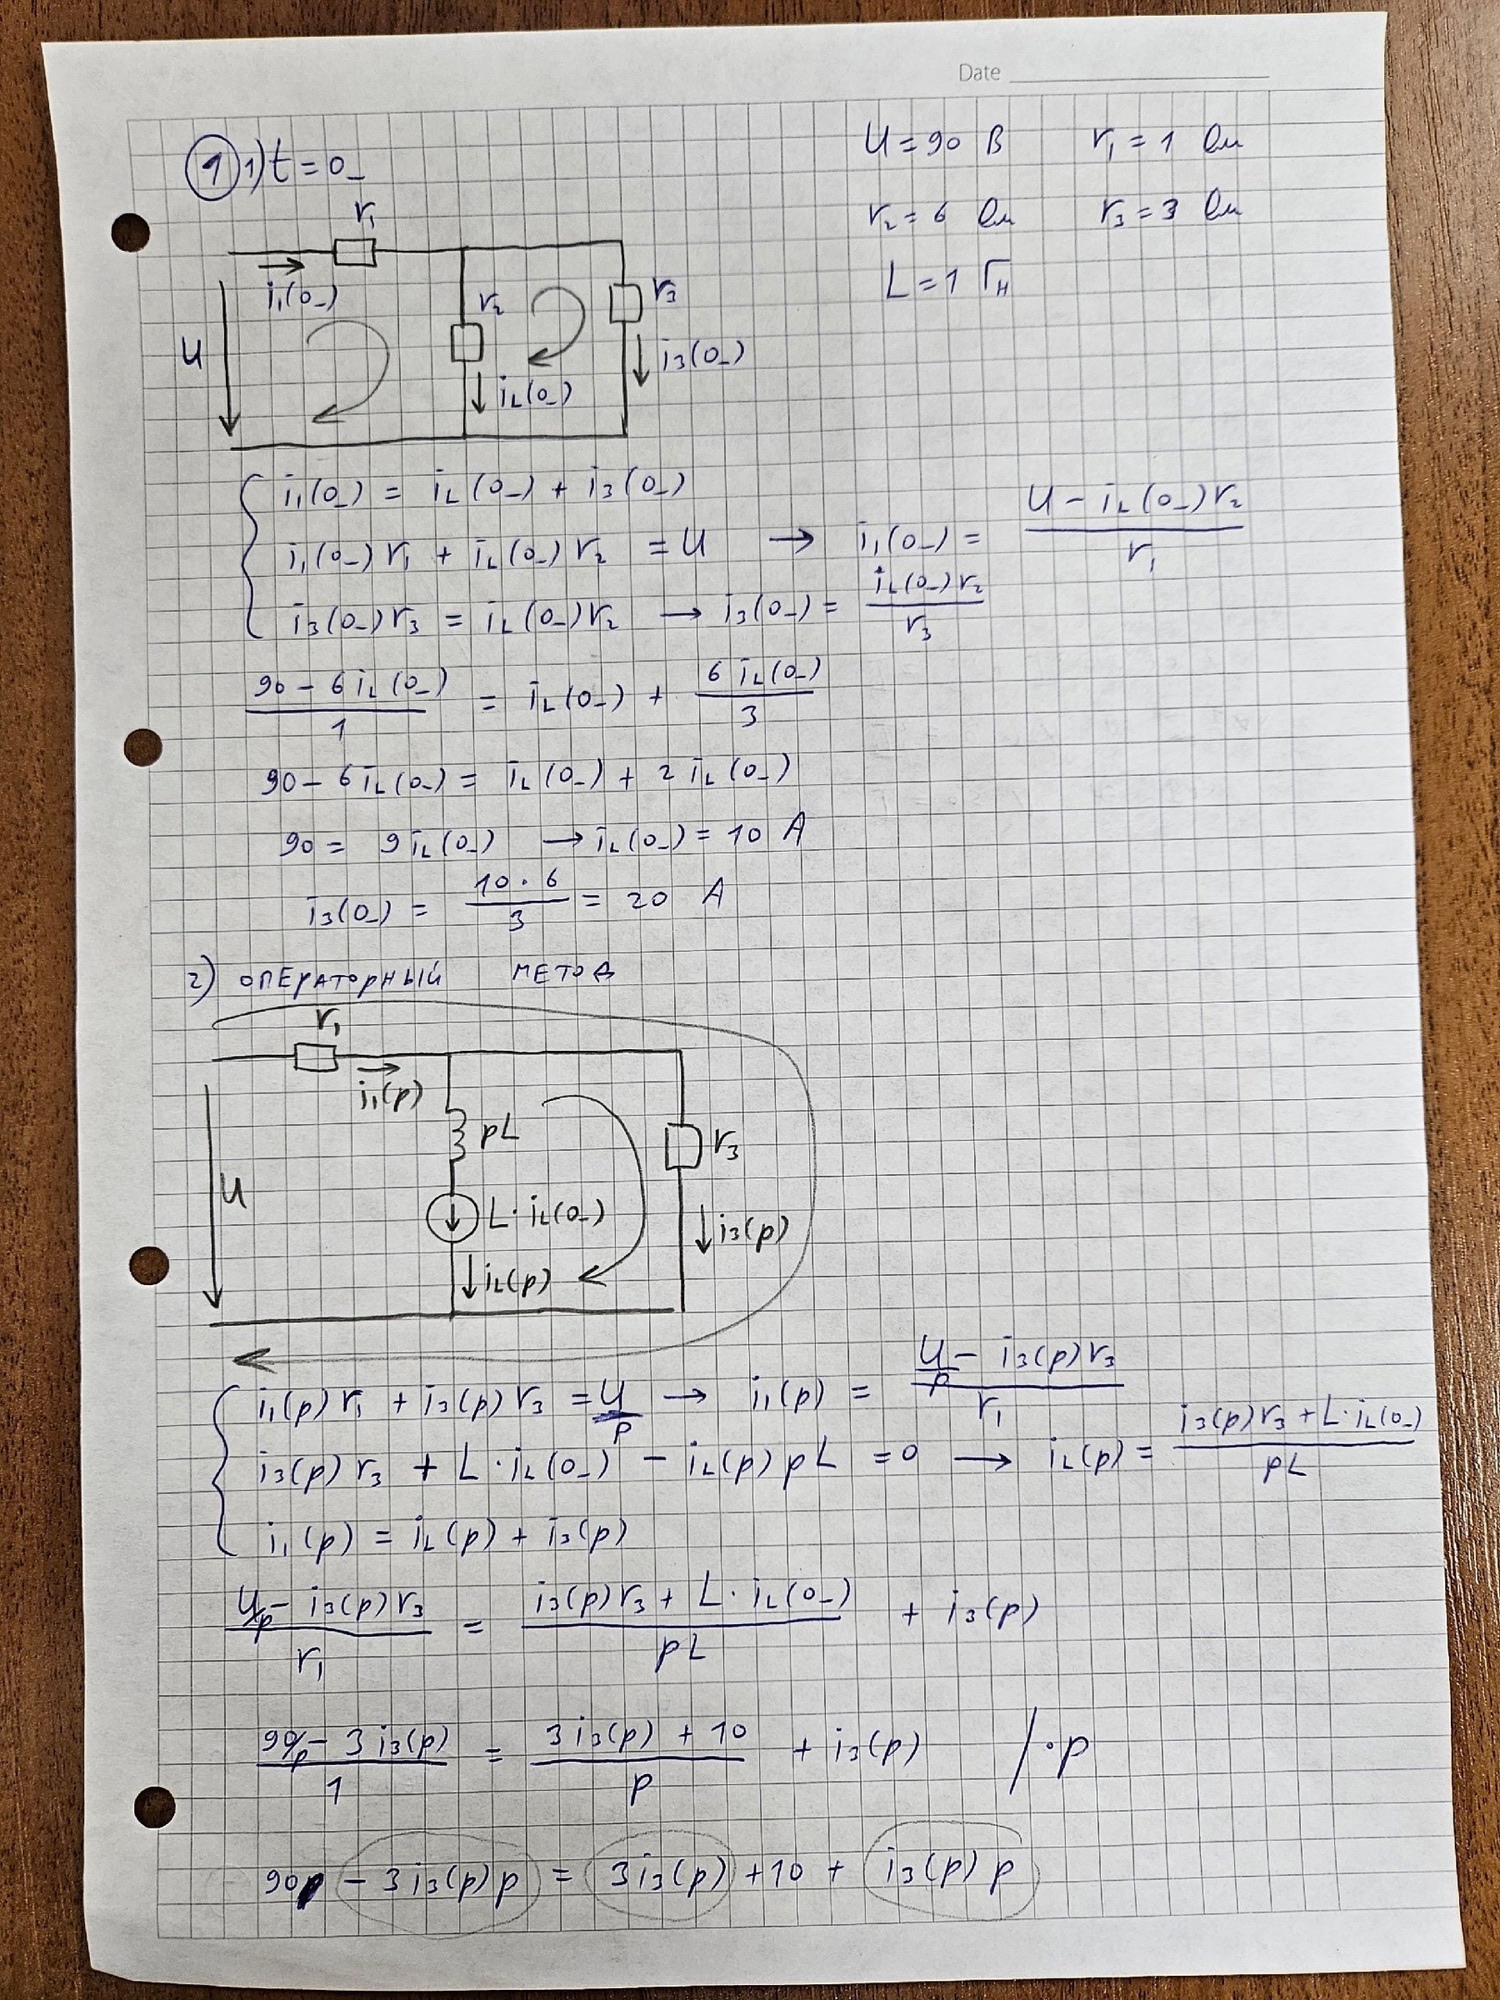 Date
U = 90 В r₁ = 1 Ом
① 1) t = 0₋
r₂ = 6 Ом r₃ = 3 Ом
L = 1 Гн
r₁
i₁(0₋)
r₂
r₃
U
i₃(0₋)
i_L(0₋)
i₁(0₋) = i_L(0₋) + i₃(0₋)
i₁(0₋) r₁ + i_L(0₋) r₂ = U → i₁(0₋) = (U - i_L(0₋) r₂) / r₁
i₃(0₋) r₃ = i_L(0₋) r₂ → i₃(0₋) = i_L(0₋) r₂ / r₃
(90 - 6 i_L(0₋)) / 1 = i_L(0₋) + 6 i_L(0₋) / 3
90 - 6 i_L(0₋) = i_L(0₋) + 2 i_L(0₋)
90 = 9 i_L(0₋) → i_L(0₋) = 10 А
i₃(0₋) = 10 · 6 / 3 = 20 А
2) ОПЕРАТОРНЫЙ МЕТОД
r₁
i₁(p)
pL
r₃
U
L · i_L(0₋)
i₃(p)
i_L(p)
i₁(p) r₁ + i₃(p) r₃ = U/p → i₁(p) = (U/p - i₃(p) r₃) / r₁
i₃(p) r₃ + L · i_L(0₋) - i_L(p) pL = 0 → i_L(p) = (i₃(p) r₃ + L · i_L(0₋)) / pL
i₁(p) = i_L(p) + i₃(p)
(U/p - i₃(p) r₃) / r₁ = (i₃(p) r₃ + L · i_L(0₋)) / pL + i₃(p)
(90/p - 3 i₃(p)) / 1 = (3 i₃(p) + 10) / p + i₃(p) / · p
90 - 3 i₃(p) p = 3 i₃(p) + 10 + i₃(p) p